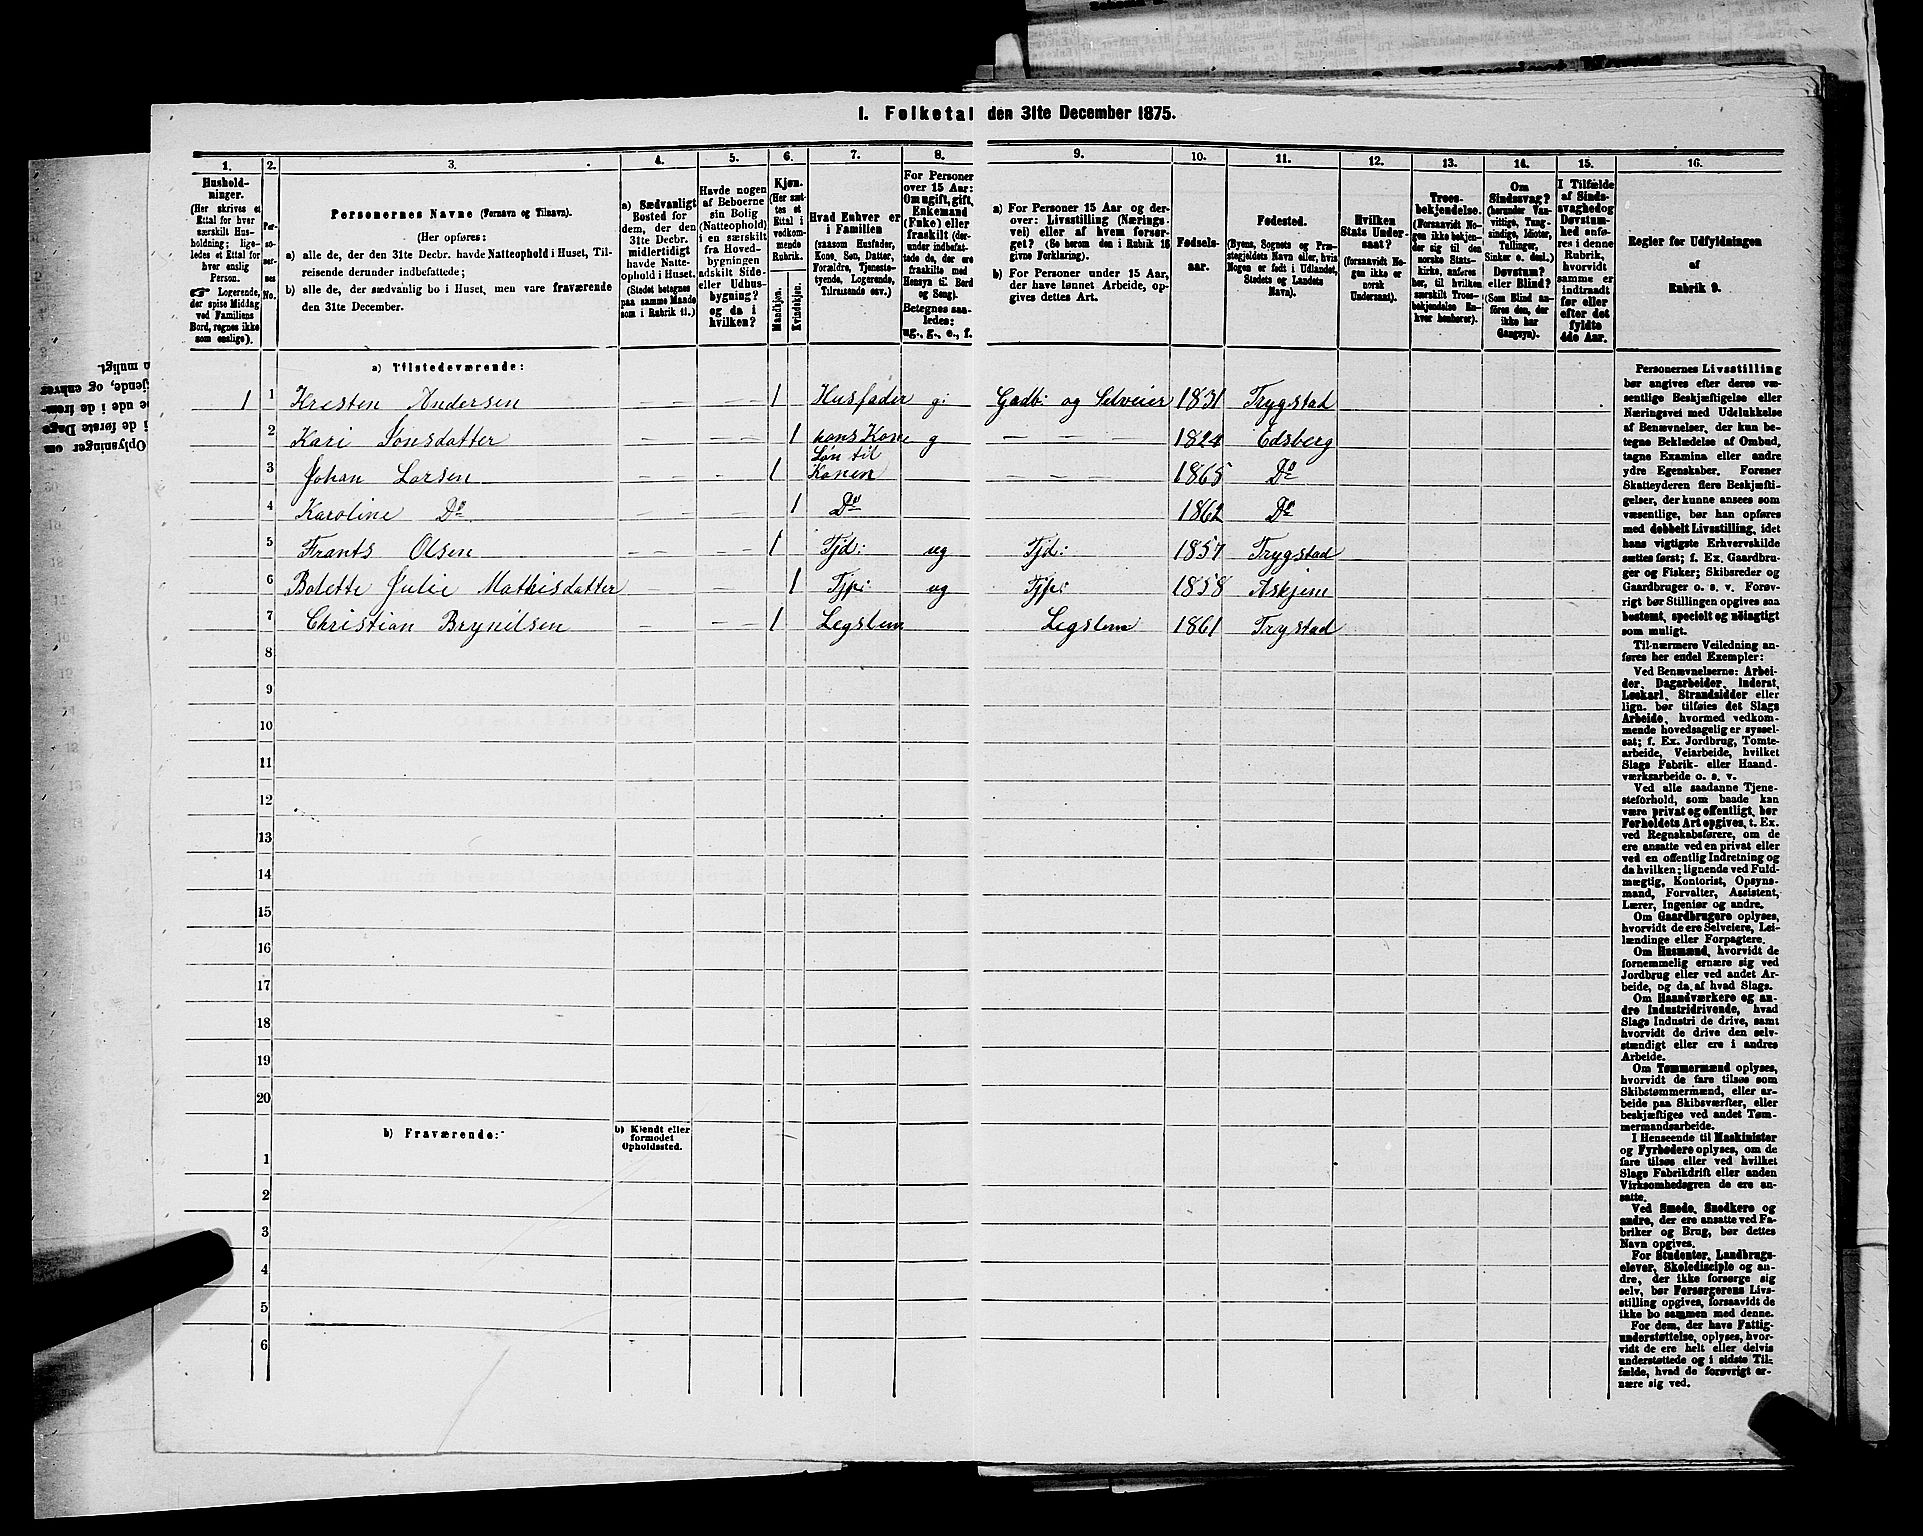 I. Folketal den 31te December 1875.
1. 2. 3. 4. 5. 6. 7. 8. 9. 10. 11. 12. 13. 14. 15. 16.
Hushold-
ninger.
(Her skrives et
Ettal for hver
særskilt Hus-
holdning; lige-
ledes et Ettal for
hver enslig
Person.
Logerende,
der spise Middag
ved Familiens
Bord, regnes ikke
som enslige).
Per-
so-
ner-
nes
No.
Personernes Navne (Fornavn og Tilnavn).
(Her opføres:
a) alle de, der den 31te Decbr. havde Natteophold i Huset, Til-
reisende derunder indbefattede;
b) alle de, der sædvanlig bo i Huset, men vare fraværende
den 31te December.
a) Sædvanligt
Bosted for
dem, der den
31te Decbr.
midlertidigt
havde Natte-
ophold i Huset.
(Stedet betegnes
paa samme Maade
som i Rubrik 11.)
Havde nogen
af Beboerne
sin Bolig
(Natteophold)
i en særskilt
fra Hoved-
bygningen
adskilt Side-
eller Udhus-
bygning?
og da i
hvilken?
Kjøn.
(Her sæt-
tes et
Ettal i
vedkom-
mende
Rubrik.
Mandkjøn.
Kvindekjøn.
Hvad Enhver er
i Familien
(saasom Husfader,
Kone, Søn, Datter,
Forældre, Tjeneste-
tyende, Logerende,
Tilreisende osv.)
For Personer
over 15 Aar:
Om ugift, gift,
Enkemand
(Enke) eller
fraskilt (der-
under indbefat-
tede de, der ere
fraskilte med
Hensyn til Bord
og Seng).
Betegnes saa-
ledes:
ug., g., e., f.
a) For Personer 15 Aar og der-
over: Livsstilling (Nærings-
vei) eller af hvem forsør-
get? (Se herom den i Rubrik 16
givne Forklaring).
b) For Personer under 15 Aar,
der have lønnet Arbeide, op-
gives dettes Art.
Fødsels-
aar.
Fødested.
(Byens, Sognets og Præ-
stegjeldets Navn eller, hvis
Nogen er født i Udlandet,
Stedets og Landets
Navn).
Hvilken
Stats Under-
saat?
(forsaavidt No-
gen ikke er
norsk
Undersaat).
Troes-
bekjendelse.
(Forsaavidt No-
gen ikke bekjen-
der sig til den
norske Stats-
kirke, anføres
her, til hvilken
særskilt Troes-
bekjendelse En-
hver henhører).
Om
Sindssvag?
(herunder Van-
vittige, Tung-
sindige, Idioter,
Tullinger,
Sinker o. desl.)
Døvstum?
eller Blind?
(Som Blind an-
føres den, der
ikke har
Gangsyn).
I Tilfælde
af Sinds-
svaghed og
Døvstum-
hed anfø-
res i denne
Rubrik,
hvorvidt
samme er
indtraadt
før eller
efter det
fyldte
4de Aar.
Regler for Udfyldningen
af
Rubrik 9.
a) Tilstedeværende:
1 1 Kresten Andersen — — 1 Husfader g: Gadb: og Selveier 1831 Trygstad
2 Kari Jonsdatter — — 1 hans Kone g — — 1824 Edsberg
3 Johan Larsen — — 1 Søn til Konen 1865 Do
4 Karoline Do — — 1 Do 1862 Do
5 Frants Olsen — — 1 Tjd: ug Tjd: 1857 Trygstad
6 Bolette Julie Mathisdatter — — 1 Tjp: ug Tjp: 1858 Askjem
7 Christian Brynilsen — — 1 Legslem Legslem 1861 Trystad
8
9
10
11
12
13
14
15
16
17
18
19
20
b) Fraværende:
b) Kjendt eller
formodet
Opholdssted.
1
2
3
4
5
6
Personernes Livsstilling
bør angives efter deres væ-
sentlige Beskjæftigelse eller
Næringsvei med Udelukkelse
af Benævnelser, der kun be-
tegne Beklædelse af Ombud,
tagne Examina eller andre
ydre Egenskaber. Forener
Skatteyderen flere Beskjæfti-
gelser, der kunne ansees som
væsentlige, bør han opføres
med dobbelt Livsstilling, idet
hans vigtigste Erhvervskilde
sættes først; f. Ex. Gaardbru-
ger og Fisker; Skibsreder og
Gaardbruger o. s. v. Forøv-
rigt bør Stillingen opgives saa
bestemt, specielt og nøiagtigt
som muligt.
Til nærmere Veiledning an-
føres her endel Exempler:
Ved Benævnelserne: Arbei-
der, Dagarbeider, Inderst,
Løskarl, Strandsidder eller
lign. bør tilføies det Slags
Arbeide, hvormed vedkom-
mende hovedsagelig er syssel-
sat; f. Ex. Jordbrug, Tomte-
arbeide, Veiarbeide, hvilket
Slags Fabrik- eller Haand-
værksarbeide o. s. v.
Ved alle saadanne Tjene-
steforhold, som baade kan
være privat og offentligt, bør
Forholdets Art opgives, t. Ex.
ved Regnskabsførere, om de
ere ansatte ved en privat eller
ved en offentlig Indretning og
da hvilken; lignende ved Fuld-
mægtig, Kontorist, Opsyns-
mand, Forvalter, Assistent,
Lærer, Ingeniør og andre.
Om Gaardbrugere oplyses,
hvorvidt de ere Selveiere, Lei-
lændinge eller Forpagtere.
Om Husmænd, hvorvidt de
fornemmelig ernære sig ved
Jordbrug eller ved andet Ar-
beide, og da af hvad Slags.
Om Haandværkere og an-
dre Industridrivende, hvad
Slags Industri de drive, samt
hvorvidt de drive den selv-
stændigt eller ere i andres
Arbeide.
Om Tømmermænd oplyses,
hvorvidt de fare tilsøs som
Skibstømmermænd, eller ar-
beide paa Skibsværfter, eller
beskjæftiges ved andet Tøm-
mermandsarbeide.
I Henseende til Maskinister
og Fyrbødere oplyses, om de
fare tilsøs eller ved hvilket
Slags Fabrikdrift eller anden
Virksomhedsgren de ere an-
satte.
Ved Smede, Snedkere og
andre, der ere ansatte ved Fa-
briker og Brug, bør dettes
Navn opgives.
For Studenter, Landbrugs-
elever, Skoledisciple og an-
dre, der ikke forsørge sig
selv, bør Forsørgerens Livs-
stilling opgives, forsaavidt de
ikke bo sammen med denne.
For dem, der have Fattig-
understøttelse, oplyses, hvor-
vidt de ere helt eller delvis
understøttede og i sidste Til-
fælde, hvad de forøvrigt er-
nære sig ved.